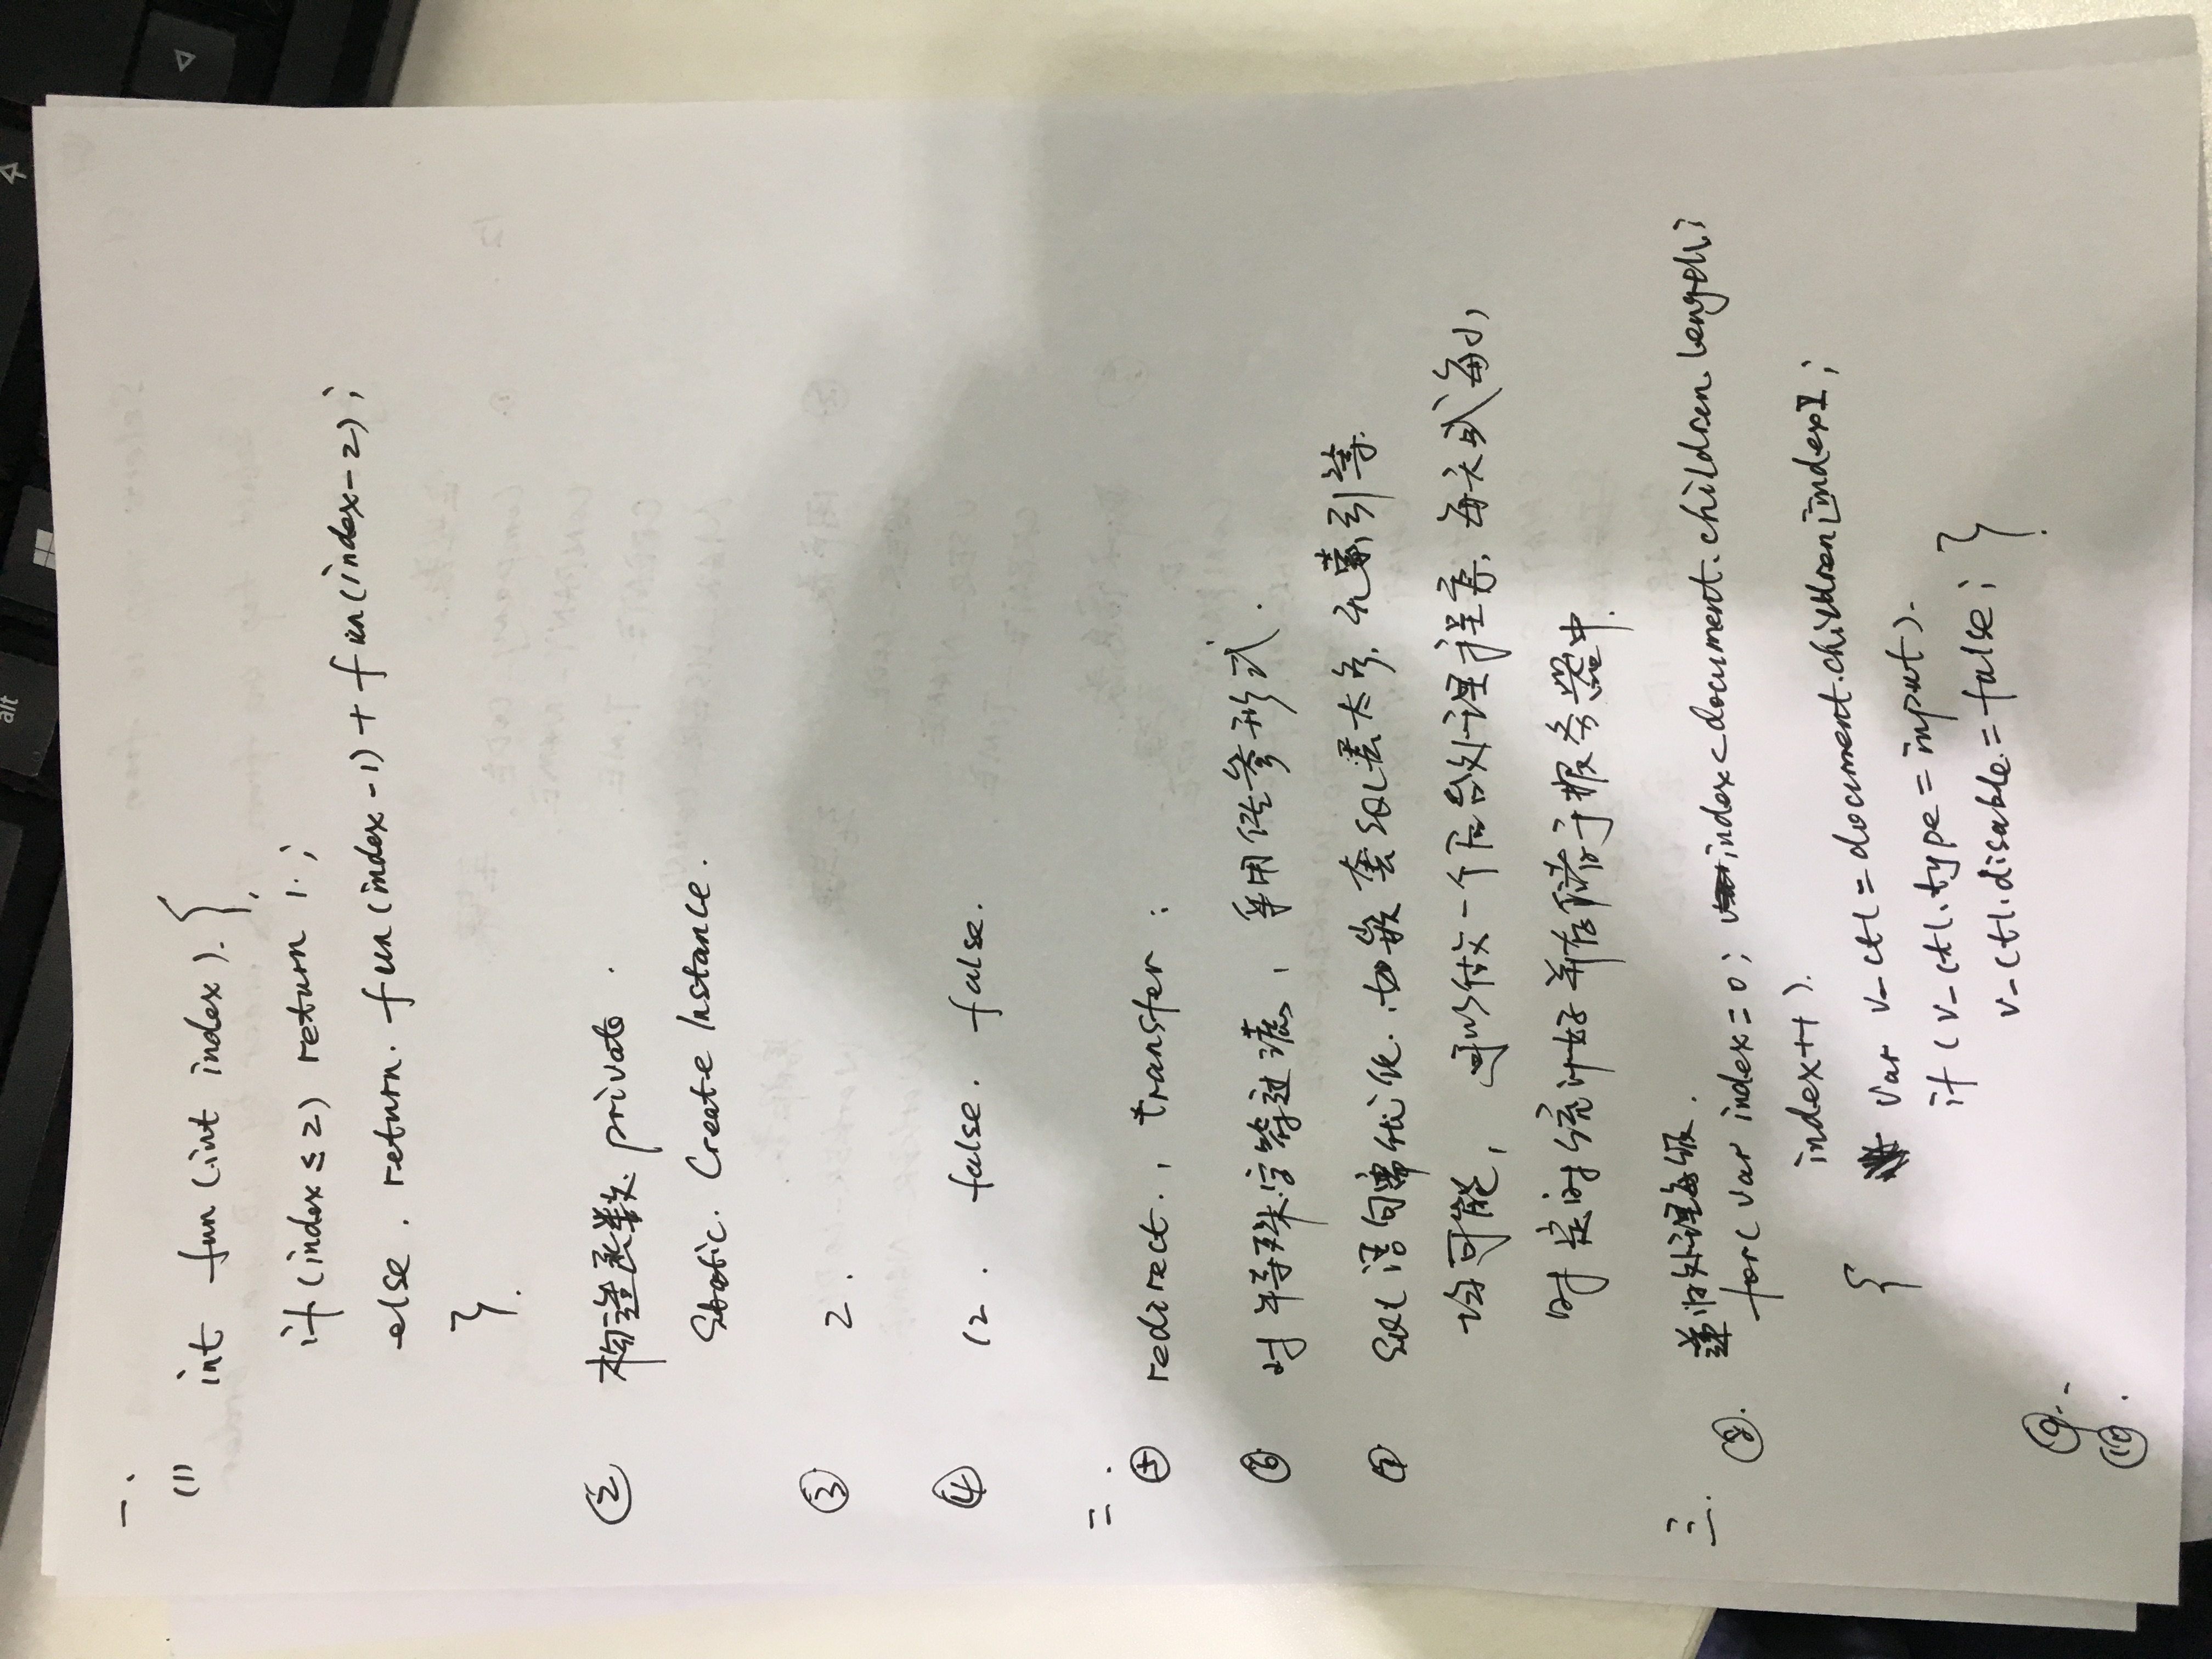 一、
(1) int fun(int index). {
if(index≤2) return 1.;
else. return. fun(index-1)+fun(index-2);
}.
② 构造函数 private.
Static. Create Instance.
③ 2.
④ 12. false. false.
二.
⑤ redirect., transfer;
⑥ 对特殊字符过滤, 采用传参形式.
⑦ SQL语句需优化.如嵌套SQL层太多,无索引等.
均可能, 可以做一个后台处理程序,每天或每小
时定时统计好并存储于服务器中.
三. 递归处理每级.
⑧. for(var index=0; index<document.children.length;
index++).
{ var v_ctl=document.children[index];
if(v_ctl.type=input).
v_ctl.disable.=false; }
⑨.
⑩.